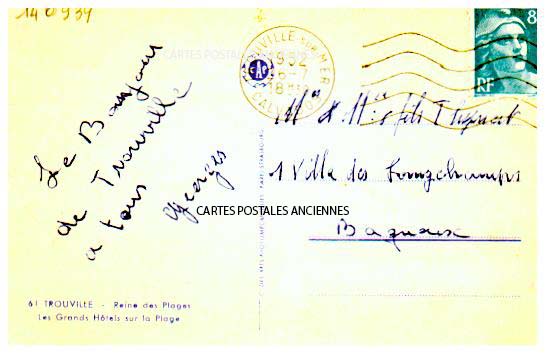 140939
CARTES POSTALES
TROUVILLE-SUR-MER
1952
16-7
18
CALVADOS
8
RF
Le Bonjour
de Trouville
a tous
Georges
Mr & Mme
1 Villa des Longchamps
Bagneux
CARTES POSTALES ANCIENNES
61 TROUVILLE - Reine des Plages
Les Grands Hôtels sur la Plage